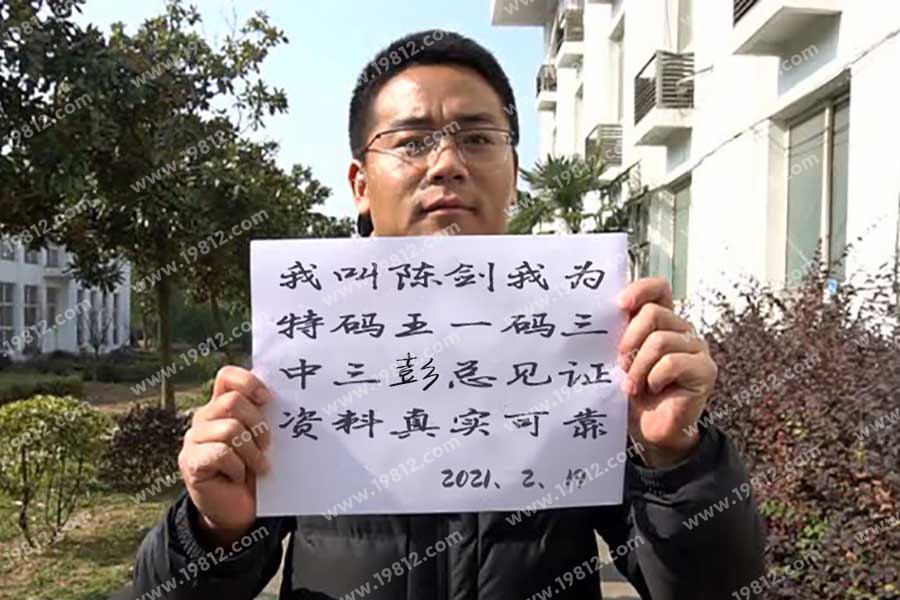 我叫陈剑我为
特码王一码三
中三彭总见证
资料真实可靠
2021、2、19
www.19812.com